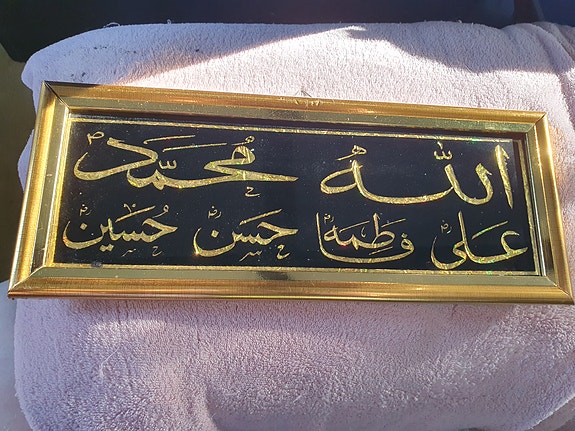 الله محمد
على فاطمة حسن حسين